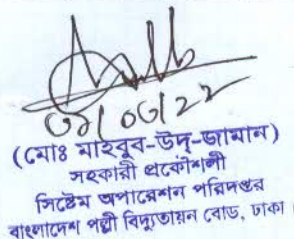 (মোঃ মাহবুব-উদ্-জামান)
সহকারী প্রকৌশলী
সিষ্টেম অপারেশন পরিদপ্তর
বাংলাদেশ পল্লী বিদ্যুতায়ন বোর্ড, ঢাকা।